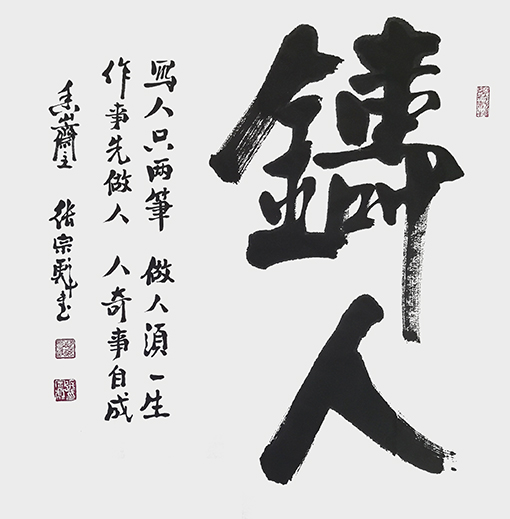 鑄人
写人只两筆 做人須一生
作事先做人 人奇事自成
張宗彪书